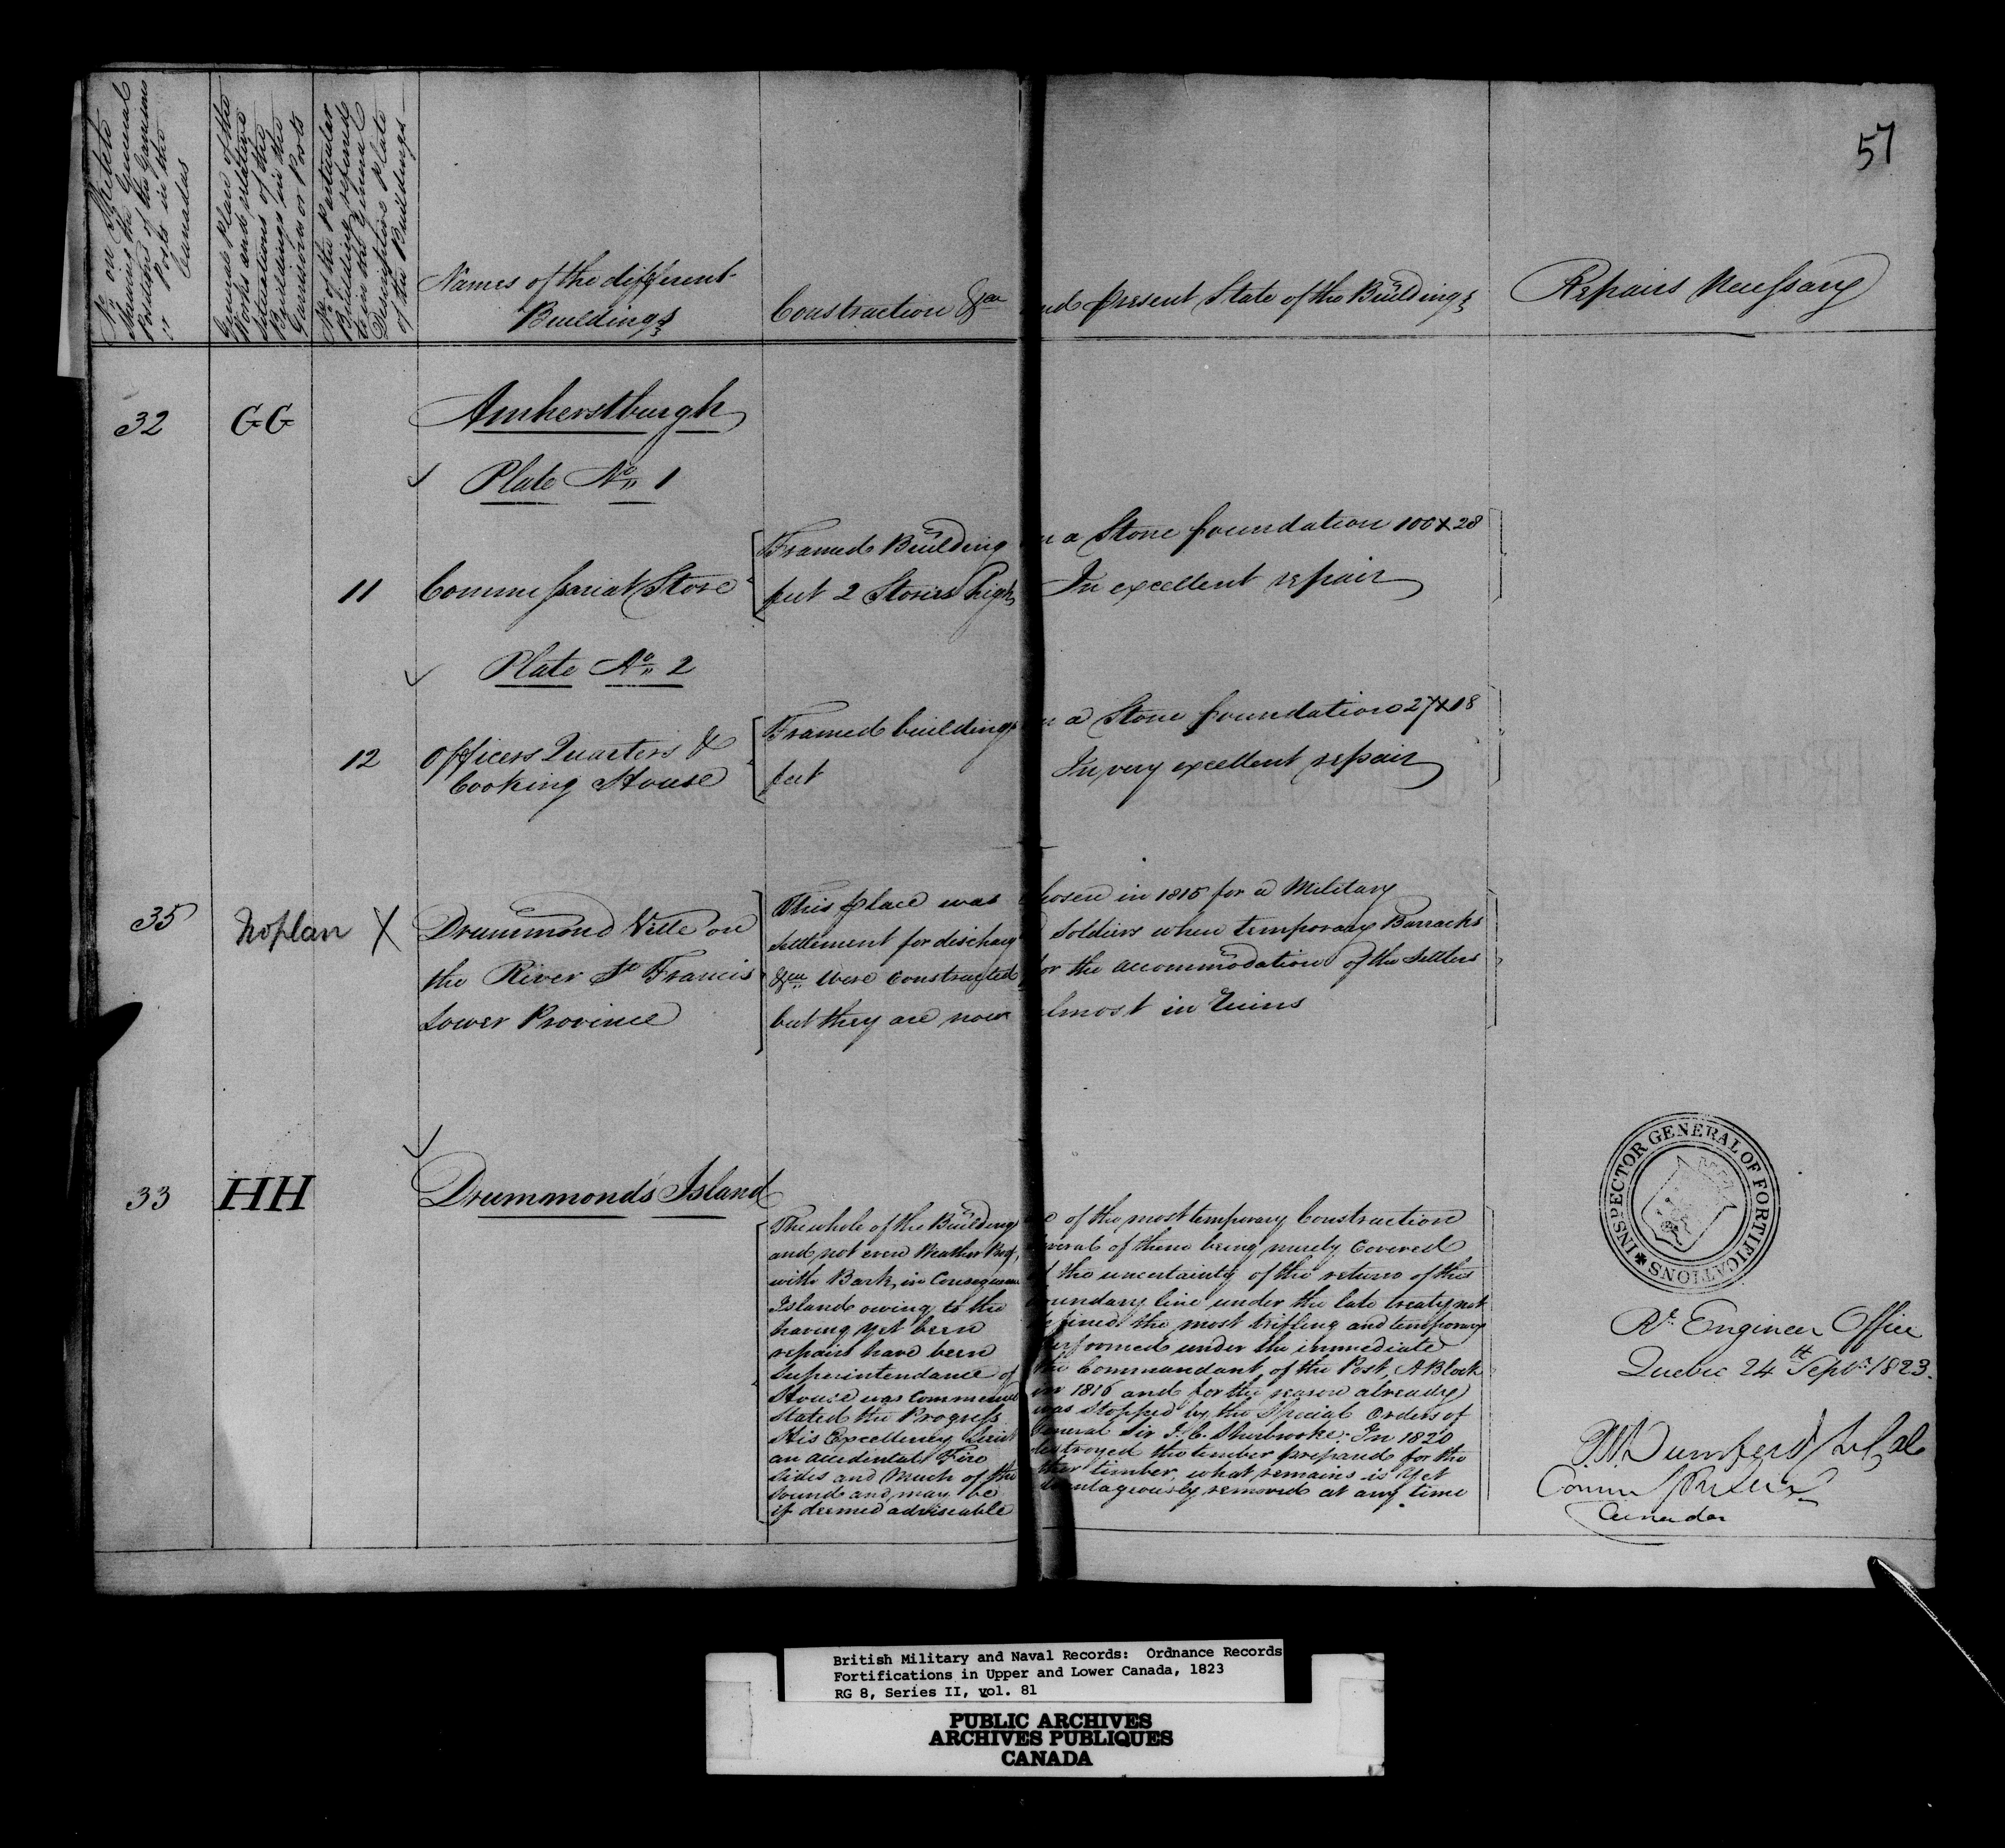 57
No on Sketch
shewing the General
Position of the Garrisons
or Posts in the
Canadas
General Plan of the
Works and relative
situations of the
Buildings in the
Garrisons or Posts
No of the Particular
Building referred
to in the General
Descriptive Plate
of the Buildings
Names of the different
Buildings
Construction &ca and present State of the Buildings
Repairs Necessary
32 GG Amherstburgh
Plate No 1
Framed Building on a Stone foundation 100 x 28
11 Commissariat Store feet 2 Stories high In excellent repair
Plate No 2
Framed buildings on a Stone foundation 27 x 18
12 Officers Quarters & Cooking House feet In very excellent repair
35 No plan X Drummond Ville on
the River St Francis
Lower Province
This place was chosen in 1815 for a Military
Settlement for discharged Soldiers when temporary Barracks
&ca were Constructed for the accommodation of the Settlers
but they are now almost in Ruins
33 HH Drummond's Island
The whole of the Buildings are of the most temporary Construction
and not even Weather Proof, several of them being merely Covered
with Bark, in Consequence of the uncertainty of the return of this
Island owing to the boundary line under the late treaty not
having yet been defined the most trifling and temporary
repairs have been performed under the immediate
Superintendance of the Commandant of the Post, A Block
House was Commenced in 1816 and for the reason already
stated the Progress was stopped by the Special Orders of
His Excellency Lieut General Sir J. C. Sherbrooke. In 1820
an accidental Fire destroyed the timber prepared for the
sides and Much of the other timber, what remains is yet
sound and may be advantageously removed at any time
if deemed adviseable
INSPECTOR GENERAL OF FORTIFICATIONS
Rl Engineer Office
Quebec 24th Septr 1823.
Durnford Lt Col
Comm
Canadas
British Military and Naval Records: Ordnance Records
Fortifications in Upper and Lower Canada, 1823
RG 8, Series II, vol. 81
PUBLIC ARCHIVES
ARCHIVES PUBLIQUES
CANADA